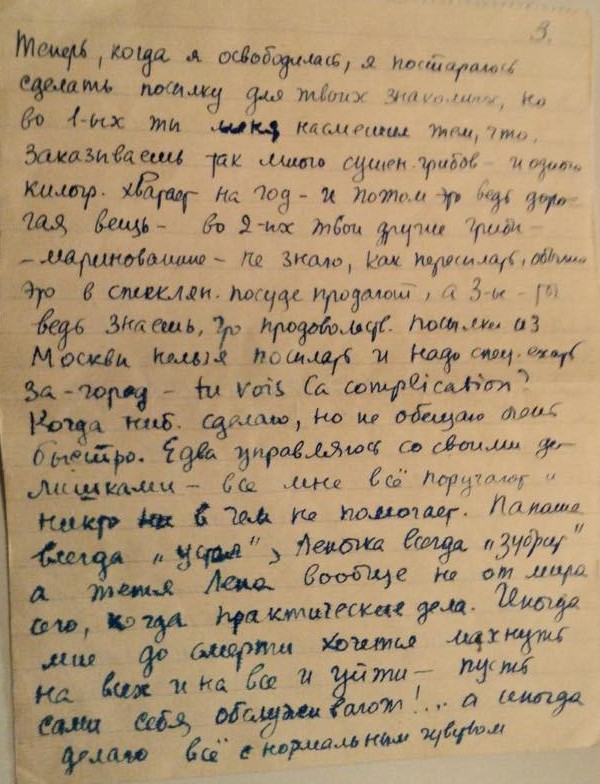 3.
Теперь, когда я освободилась, я постараюсь
сделать посылку для твоих знакомых, но
во 1-ых ты меня насмешил тем, что
заказываешь так много сушен. грибов - и одного
килогр. хватает на год - и потом это ведь доро-
гая вещь - во 2-их твои другие грибы -
- маринованные - не знаю, как пересылать, обычно
это в стеклян. посуде продают, а 3-ье - ты
ведь знаешь, что продовольств. посылки из
Москвы нельзя посылать и надо спец. ехать
за-город - tu vois la complication?
Когда ниб. сделаю, но не обещаю очень
быстро. Едва управляюсь со своими де-
лишками - все мне всё поручают и
никто в чем не помогает. Папаша
всегда „устал", Леночка всегда „зубрит"
а тетя Лена вообще не от мира
сего, когда практические дела. Иногда
мне до смерти хочется махнуть
на всех и на все и уйти - пусть
сами себя обслуживают!... а иногда
делаю всё с нормальным чувством